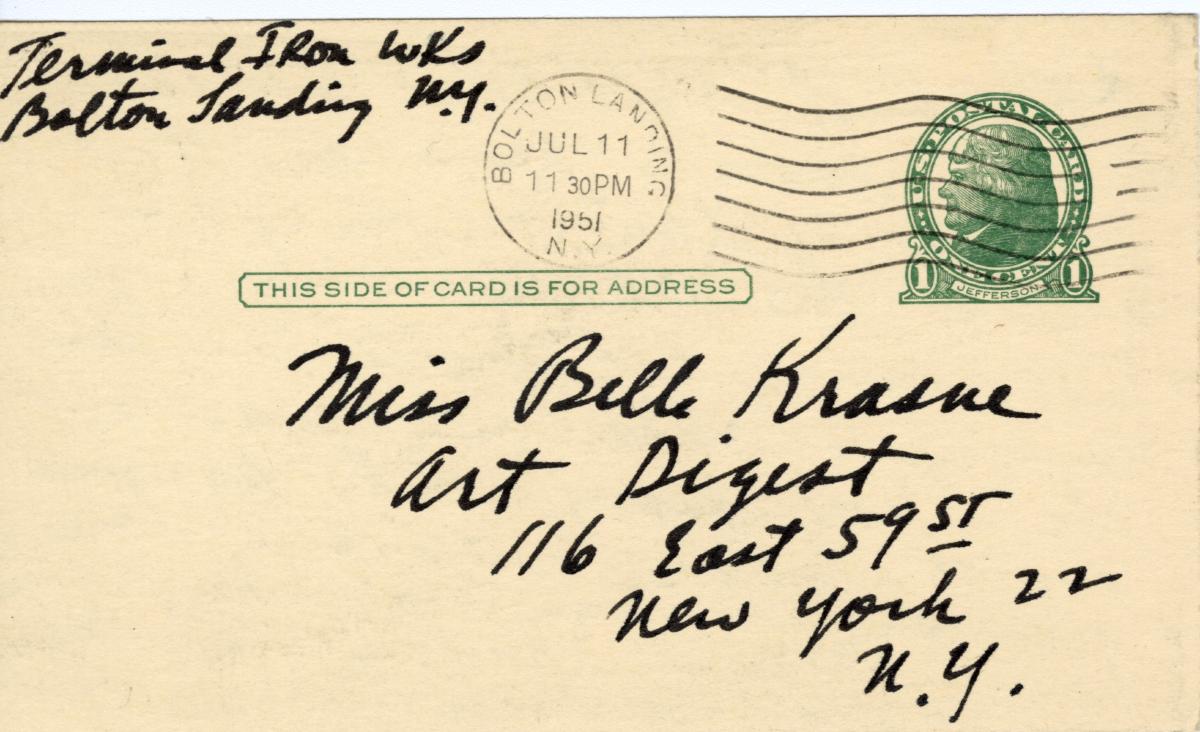 Terminal Iron Wks
Bolton Landing N.Y.
BOLTON LANDING
JUL 11
11 30 PM
1951
N.Y.
U.S. POSTAL CARD
ONE CENT
1 JEFFERSON 1
THIS SIDE OF CARD IS FOR ADDRESS
Miss Belle Krasne
Art Digest
116 East 59 ST
New York 22
N.Y.